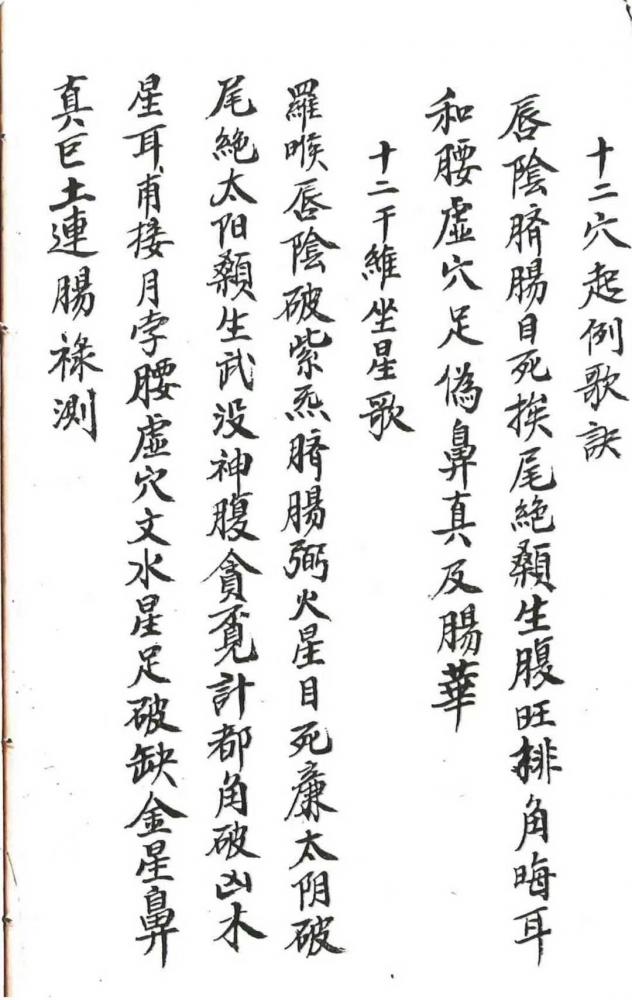 十二穴起例歌訣
唇陰臍腸目死挨尾絶顙生腹旺排角晦耳
和腰虛穴足偽鼻真及腸華
十二干維坐星歌
羅㬋唇陰破紫炁臍腸弼火星目死廉太阴破
尾絶太阳顙生武没神腹貪覔計都角破凶木
星耳甫接月孛腰虛穴文水星足破缺金星鼻
真巨土連腸祿測